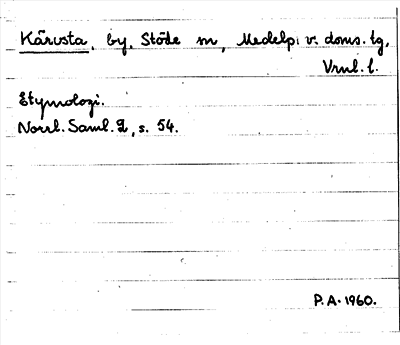 Kärvsta, by, Stöde sn, Medelp. v. doms. tg,
Vrnl. l.
Etymologi.
Norrl. Saml. 2, s. 54.
P.A. 1960.